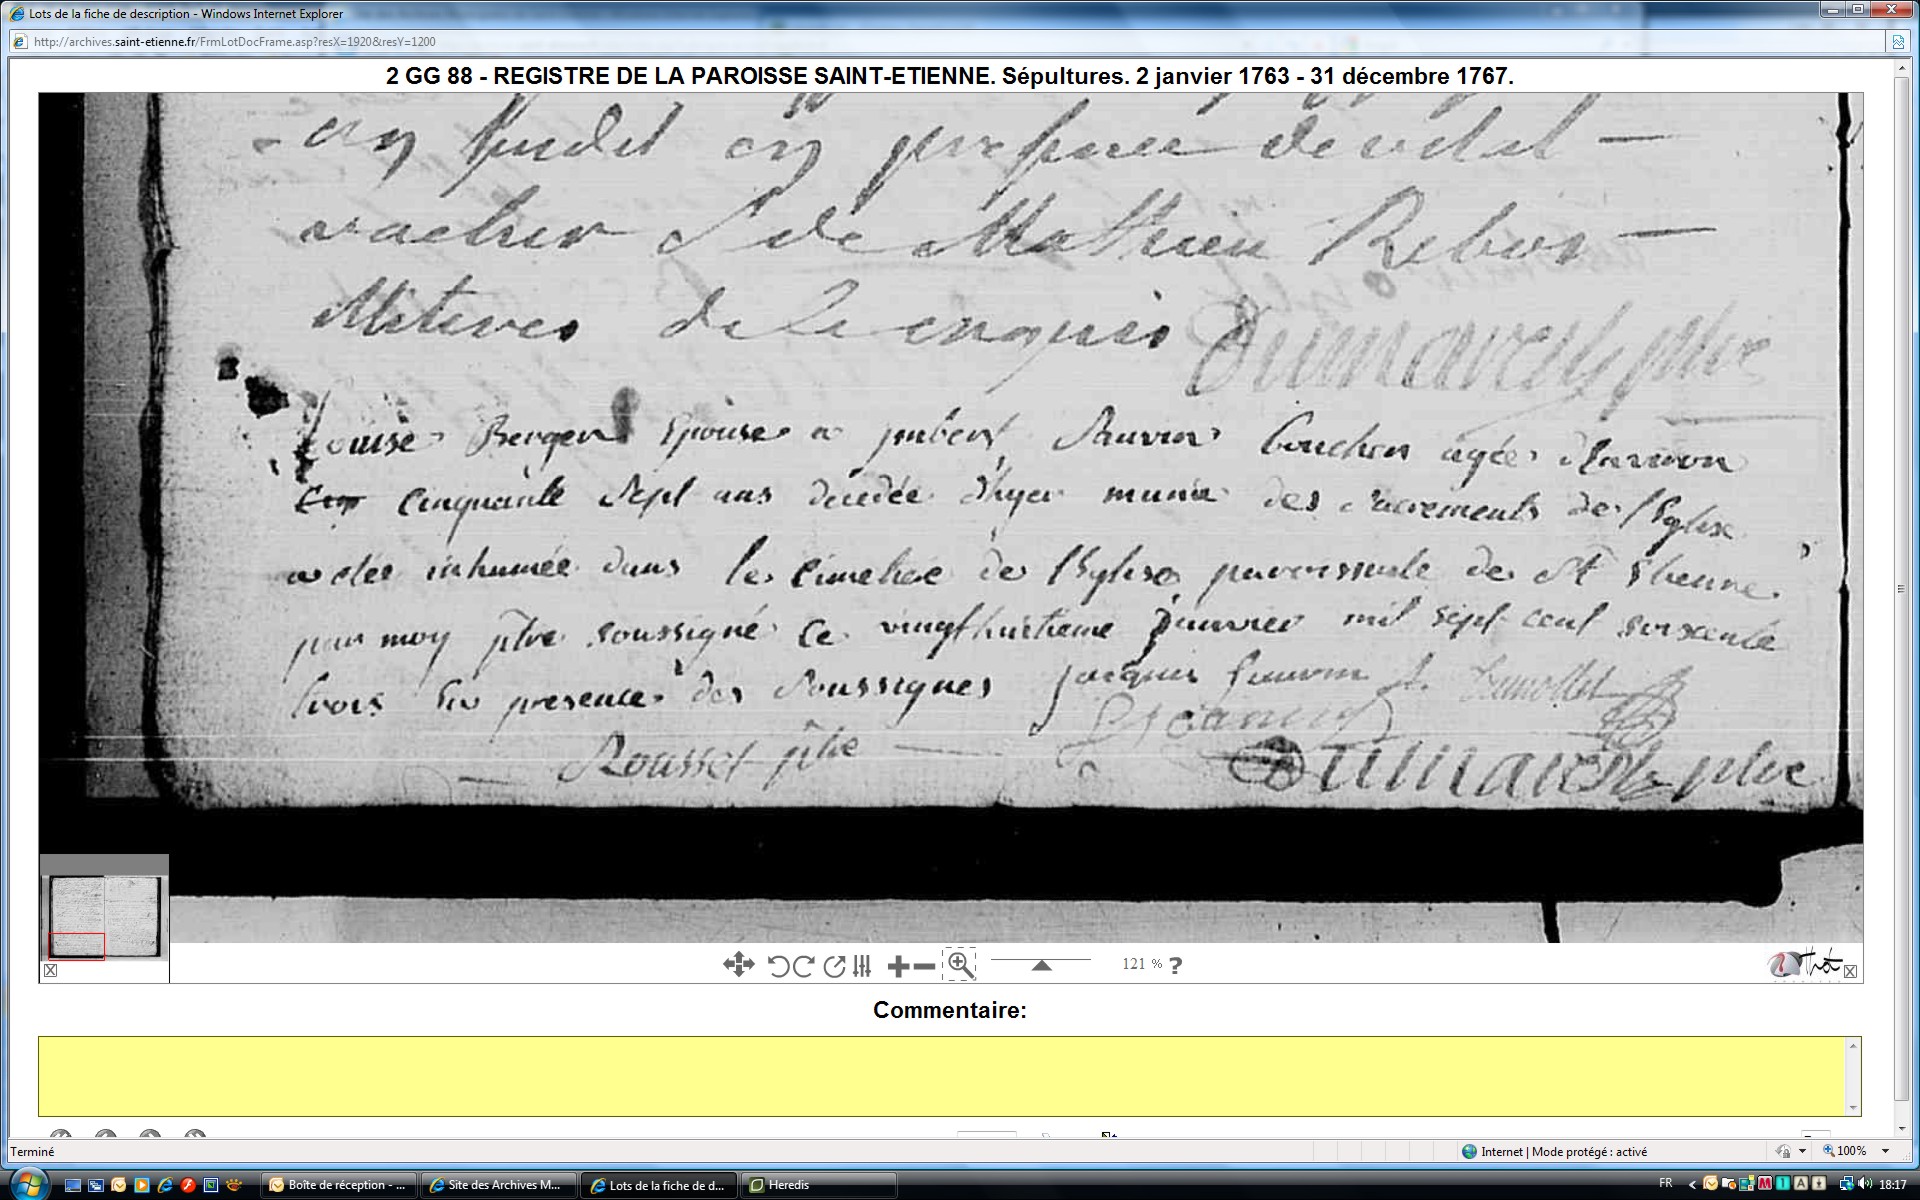 Lots de la fiche de description - Windows Internet Explorer
http://archives.saint-etienne.fr/FrmLotDocFrame.asp?resX=1920&resY=1200
2 GG 88 - REGISTRE DE LA PAROISSE SAINT-ETIENNE. Sépultures. 2 janvier 1763 - 31 décembre 1767.
en
vacher de Mathieu Rebor
Miteres de Dumarest ptre
Louise Berger Epouse a jubert Sauvin bouchon agée d'environ
cinquante sept ans decedée d'hyer munie des sacrements de l'Eglise
a eté inhumée dans le cimetiere de l'Eglise paroissiale de St Etienne
par moy ptre soussigné ce vingthuitieme janvier mil sept cent soixante
trois En presence des soussignes jacques Sauvin
Rousset ptre Dumarest ptre
121 % ?
Commentaire:
Terminé
Internet | Mode protégé : activé
100%
Boîte de réception - ...
Site des Archives M...
Lots de la fiche de d...
Heredis
FR
18:17